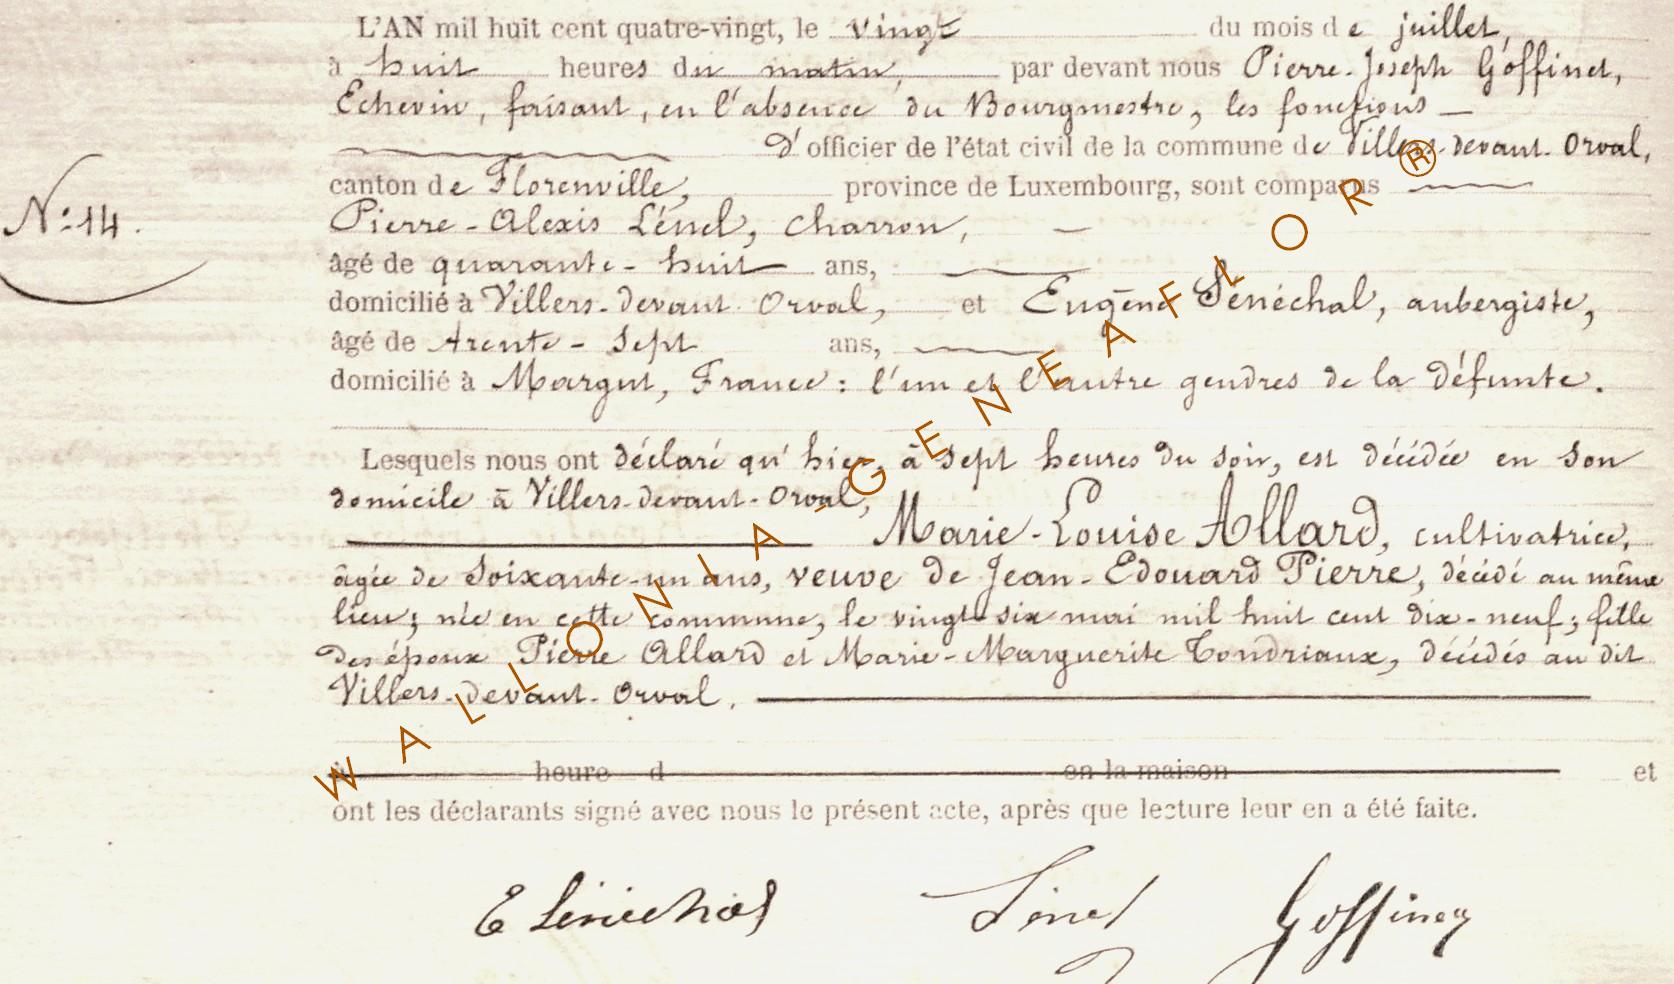 L'AN mil huit cent quatre-vingt, le vingt du mois de juillet,
à huit heures du matin, par devant nous Pierre-Joseph Goffinet,
Echevin, faisant, en l'absence du Bourgmestre, les fonctions
D'officier de l'état civil de la commune de Villers-devant-Orval,
canton de Florenville, province de Luxembourg, sont comparus
N°:14.
Pierre-Alexis Lénel, charron,
âgé de quarante-huit ans,
domicilié à Villers-devant-Orval, et Eugène Sénéchal, aubergiste,
âgé de trente-sept ans,
domicilié à Margut, France: l'un et l'autre gendres de la défunte.
Lesquels nous ont déclaré qu'hier, à sept heures du soir, est décédée en son
domicile à Villers-devant-Orval,
Marie-Louise Allard, cultivatrice,
âgée de soixante-un ans, veuve de Jean-Edouard Pierre, décédé au même
lieu; née en cette commune, le vingt-six mai mil huit cent dix-neuf; fille
des époux Pierre Allard et Marie-Marguerite Tondriaux, décédés au dit
Villers-devant-Orval.
à heure d en la maison et
ont les déclarants signé avec nous le présent acte, après que lecture leur en a été faite.
E Sénéchal Lénel Goffinet
WALLONIA-GENEAFLOR®